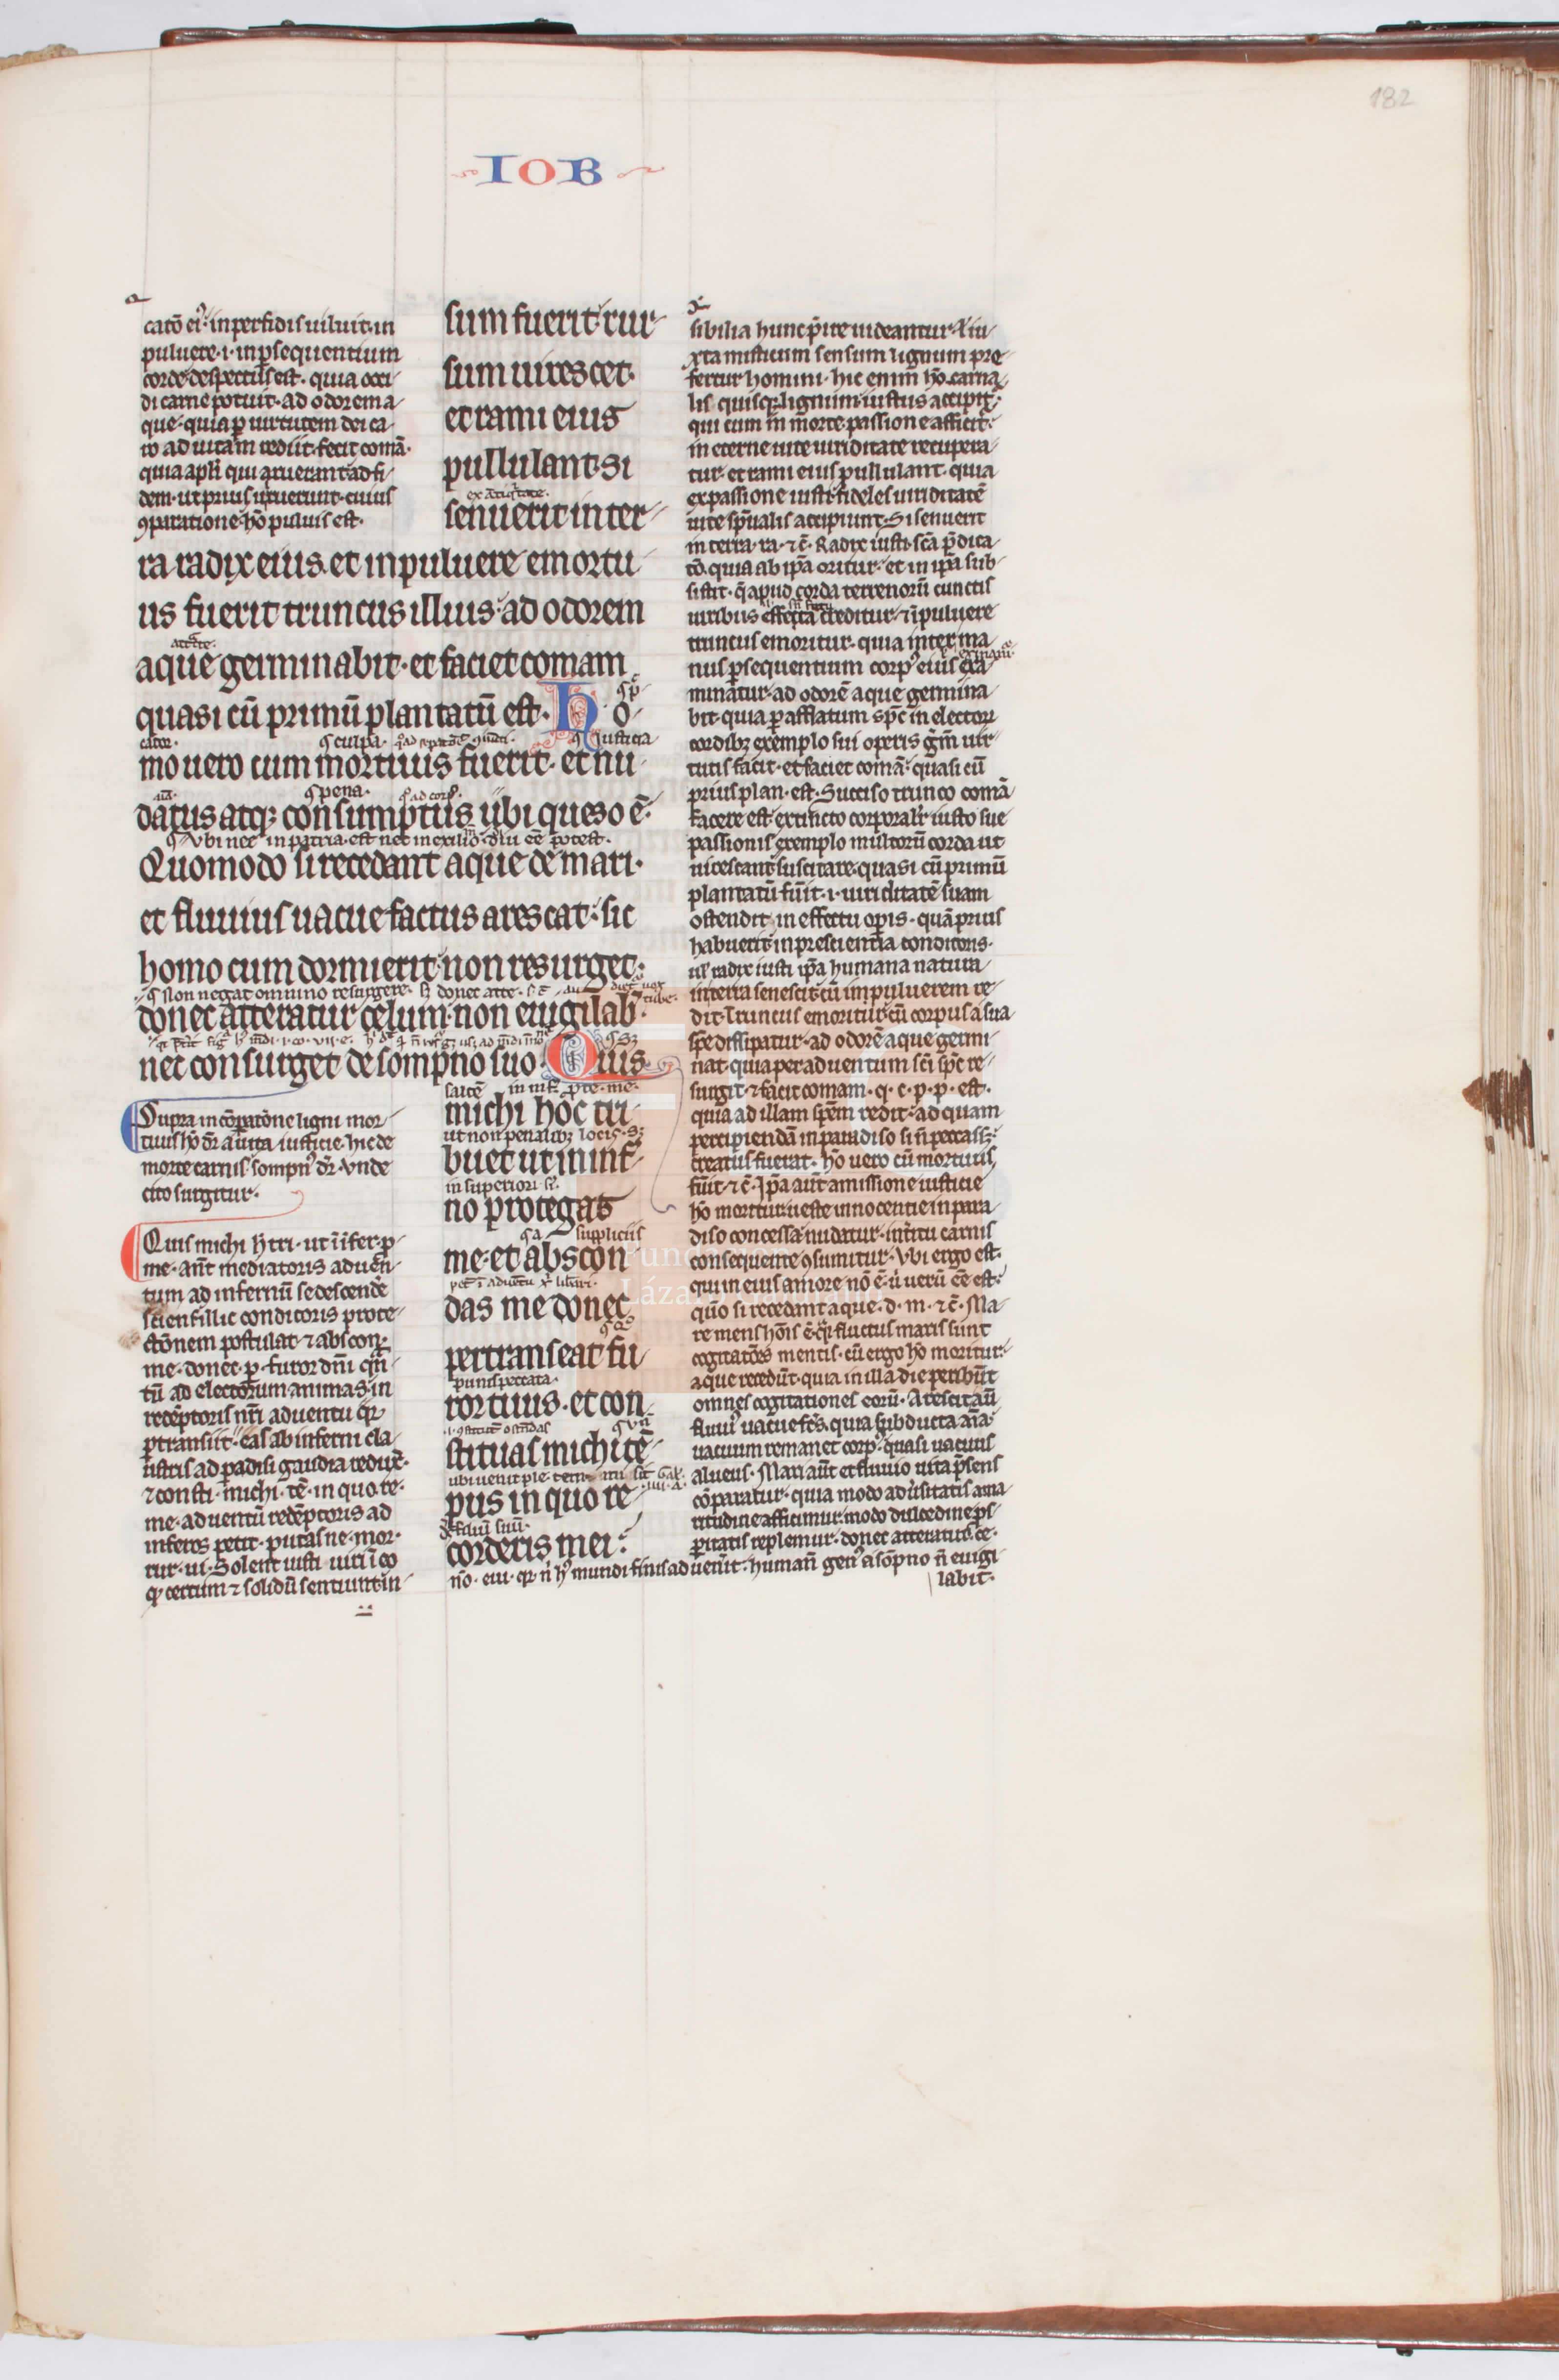 182
IOB
catō ei᾽· in perfidis uiluit· in
puluere· i· in p̄sequentium
corde despectus est· quia occi-
di carne potuit· ad odorem a-
que· quia per uirtutem dei ca-
ro ad uitam rediit· fecit comā·
quia apl̄i qui aruerant ad fi-
dem· ut prius uiruerunt· cuius
ꝯparatione hō puluis est·
sum fuerit· rur-
sum uirescet·
et rami eius
pullulant· Si
senuerit in ter-
ra radix eius· et in puluere emortu-
us fuerit truncus illius· ad odorem
aque germinabit· et faciet comam
quasi cū primū plantatū est· Ho-
mo uero cum mortuus fuerit· et nu-
datus atq; consumptus ubi queso ē·
ubi nec in patria est nec in exilio diu eē potest·
Quomodo si recedant aque de mari·
et fluuius uacuefactus arescat· sic
homo cum dormierit· non resurget·
Non negat omnino resurgere·
donec atteratur celum· non euigilab᾽
nec consurget de sompno suo· Quis
michi hoc tri-
ut non penalib; locis·
buet ut in inf-
in superiori
no protegas
suppliciis
me· et abscon-
das me donec
pertranseat fu-
puniens peccata·
ror tuus· et con-
stituas michi tē-
pus in quo re-
corderis mei·
Supra in cōparatōne ligni mor-
tuus hō dr̄ a uita iusticie· hic de
morte carnis· sompn᾽ dr̄· Vnde
cito surgitur·
Quis michi h tri· ut ī īfer· p·
me· ant̄ mediatoris aduen-
tum ad infernū se descende᾽
sciens· illic conditoris prote-
ctōnem postulat ⁊ abscon·
me· donec· p· furor dn̄i qn̄-
tū ad electorum animas· in
redēptoris nr̄i aduentu q̄r
ptransiit· eas ab inferni cla-
ustris ad padisi gaudia redux̄·
⁊ consti· michi· tē· in quo re·
me· aduentū redēptoris ad
inferos petit· putasne· mor·
tur· ui· Solent iusti uiri ī eo
q᷒ certum ⁊ solidū sentiunt· in-
sibilia hunc p̄ire uideantur· ł iu-
xta misticum sensum lignum pre-
fertur homini· hic enim hō carna-
lis quisq;· lignum iustus accipit᷑·
qui cum in morte passione afficit᷑·
in eterne uite uiriditate recupera-
tur· et rami eius pullulant· quia
ex passione iusti fideles uiriditatē
uite spūalis accipiunt· Si senuerit
in terra· ra· ⁊ c̄· Radix iusti· sc̄a p̄dica-
tō· quia ab ipā oritur· et in ipā sub-
sistit· q̄ apud corda terrenorū cunctis
uiribus effecta creditur· ⁊ ī puluere
truncus emoritur· quia inter ma-
nus p̄sequentium corp᾽ eius exa-
minatur· ad odorē aque germina-
bit· quia p afflatum sp̄c in electorū
cordib; exemplo sui operis ḡm̄ uir-
tutis facit· et faciet comā· quasi cū
prius plan· est· Succiso trunco comā
facere est· extincto corporalr̄ iusto sue
passionis exemplo multorū corda ut
uirescant suscitare· quasi cū primū
plantatū fuīt· i· uiriditatē suam
ostendit in effectu opis· quā prius
habuerit in prescientia conditoris·
ul᾽ radix iusti ipa humana natura
in terra senescit cū in puluerem re-
dit· truncus emoritur· cū corpus a sua
spe dissipatur· ad odorē aque germi-
nat· quia per aduentum sc̄i sp̄c re-
surgit· ⁊ facit comam· q· c· p· p· est·
quia ad illam spēm redit· ad quam
percipiendā in paradiso si n̄ peccass;
creatus fuerat· hō uero cū mortuus
fuīt· ⁊ c̄· Ipa aut̄ amissione iusticie
hō moritur· ueste innocentie in para-
diso concessa nudatur· int̄itu carnis
consequente ꝯsumitur· Vbi ergo est·
qui in eius amore nō ē· ū uerū eē est·
quō si recedant aque· d· m· ⁊ c̄· Ma-
re mens hōis ē· q̄i fluctus maris sunt
cogitatōes mentis· cū ergo hō moritur·
aque recedūt· quia in illa die peribūt
omnes cogitationes eorū· Arescit aū
fluui᾽ uacuefc̄s· quia subducta aīa
uacuum remanet corp᾽· quasi uacuus
alueus· Mari aūt et fluuio uita p̄sens
cōparatur· quia modo aduersitatis ama-
ritudine afficimur· modo dulcedine p̄s-
pitatis replemur· donec atteratur· ce·
nō· eui· q᷒ n̄ h᾽ mundi finis aduenīt· human̄ gen᾽ a sōpno n̄ euigi-
labit·
Fundación
Lázaro Galdiano